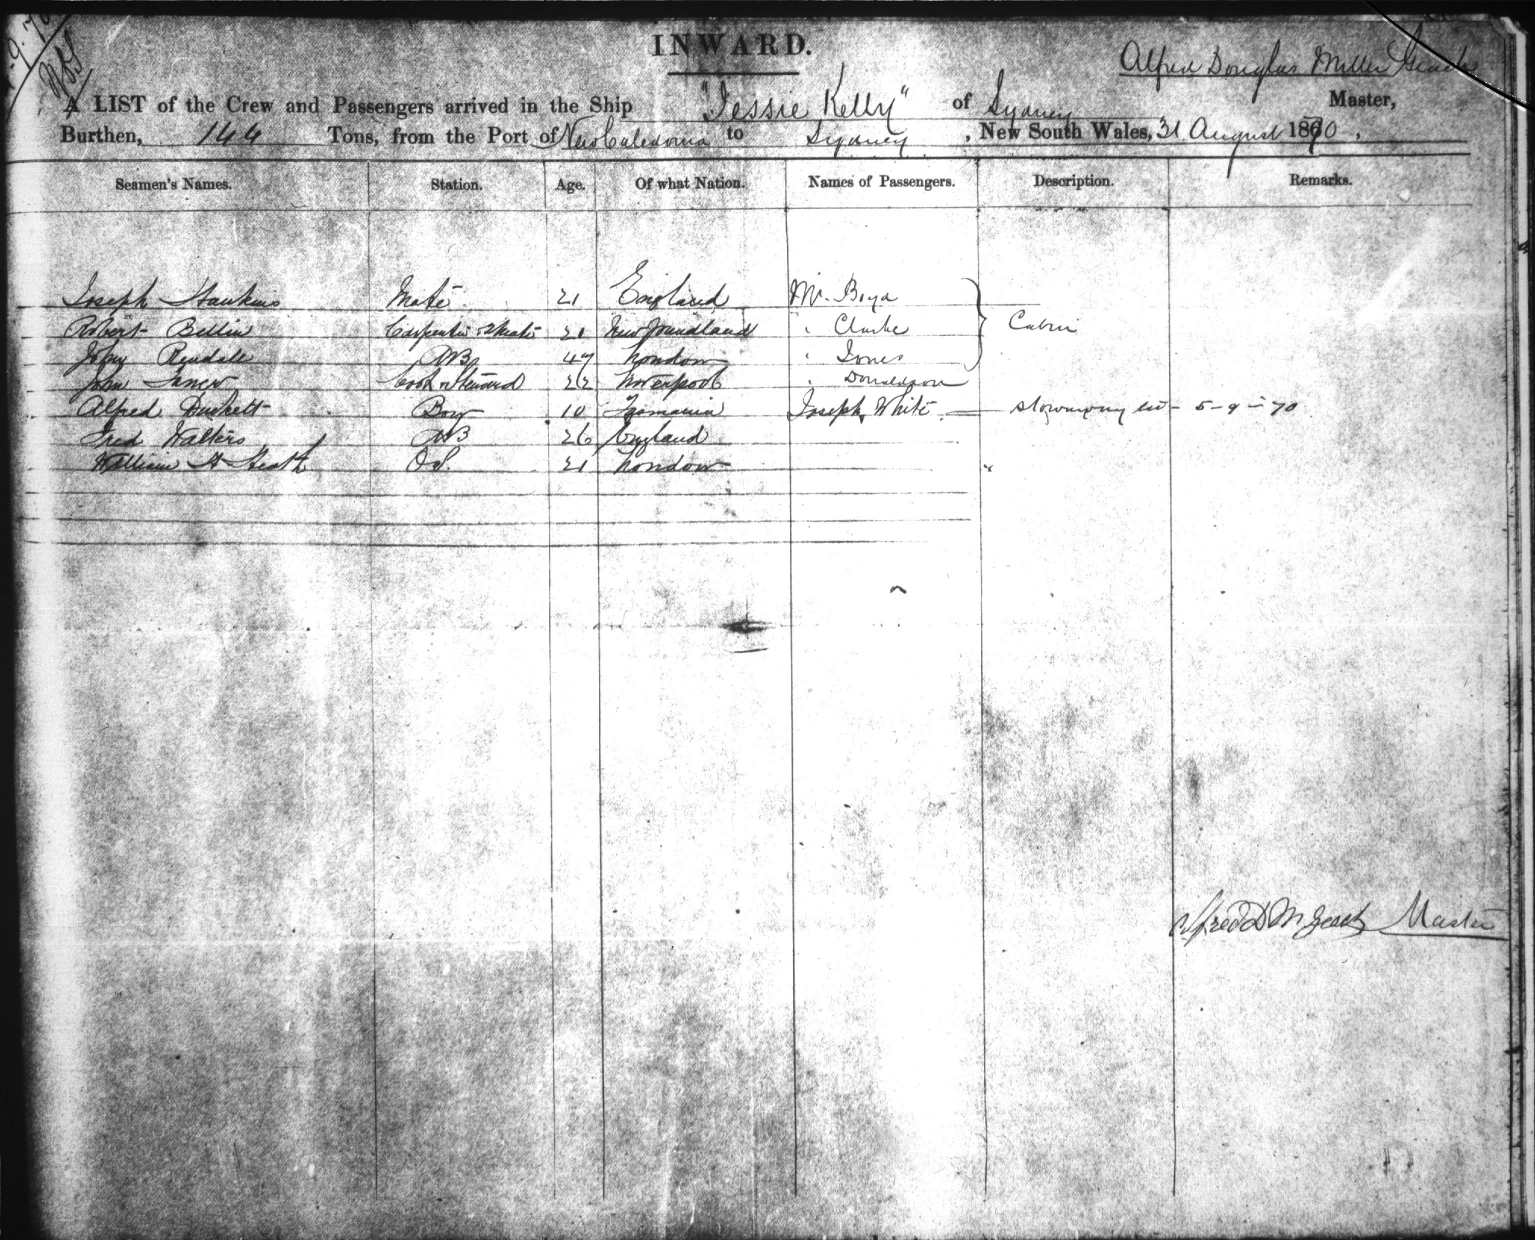 INWARD.
Alfred Douglas Miller Geach
A LIST of the Crew and Passengers arrived in the Ship "Jessie Kelly" of Sydney Master,
Burthen, 144 Tons, from the Port of New Caledonia to Sydney, New South Wales, 31 August 1870.
Seamen's Names. Station. Age. Of what Nation. Names of Passengers. Description. Remarks.
Joseph Hawkins Mate 21 England Mr. Boyd
Robert Bellin Carpenter & 2 Mate 21 Newfoundland " Clarke Cabin
John Rendale AB 47 London " Jones
John Cook & Steward 22 Liverpool " Donaldson
Alfred Duckett Boy 10 Tasmania Joseph White 5-9-70
Fred Walters AB 26 England
William H Heath O.S. 21 London
Alfred D M Geach Master